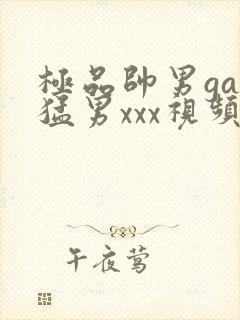 極品帥男ga
猛男xxx視頻
午夜莺